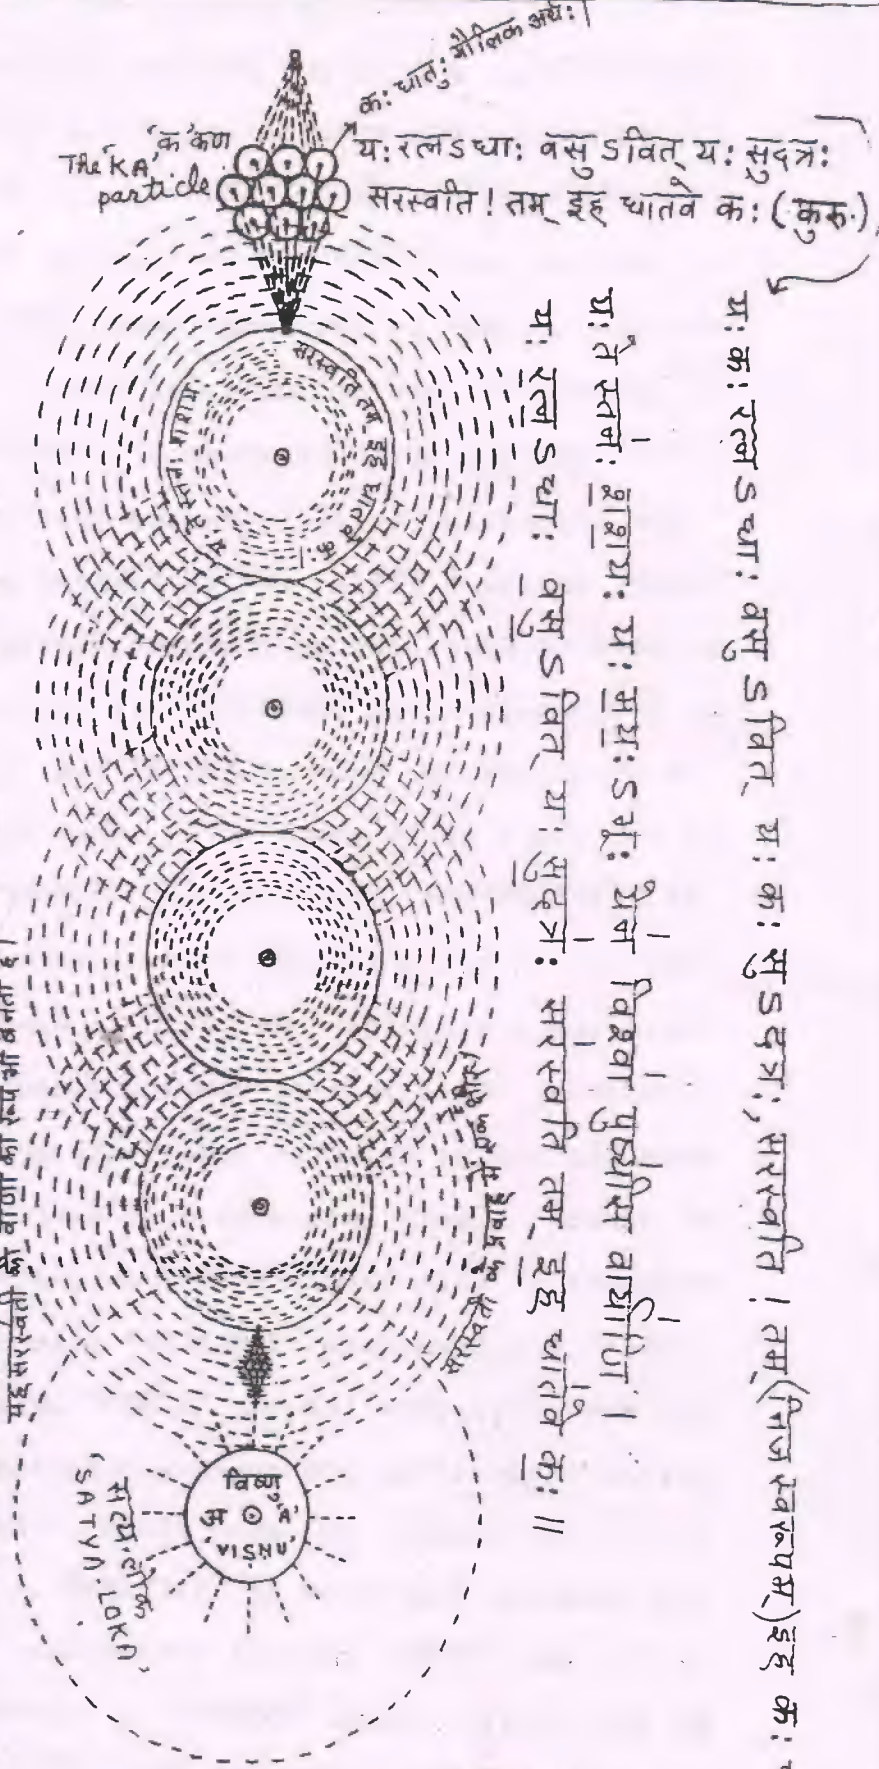 क: धातु: मौलिक अर्थ: |
'क' कण
The 'KA' particle
य: रत्नऽधा: वसुऽवित् य: सुदत्र:
सरस्वति ! तम् इह धातवे क: (कुरु.)
य: क: रत्नऽधा: वसुऽवित् य: क: सुऽदत्र:, सरस्वति ! तम् (निजस्वरूपम्) इह क:
य: ते स्तन: शशय: य: मय:ऽभू: येन विश्वा पुष्यसि वार्याणि ।
य: रत्नऽधा: वसुऽवित् य: सुदत्र: सरस्वति तम् इह धातवे क: ॥
सरस्वति तम् इह धातवे क: |
य: ते स्तन: शशय:
यह सरस्वती की वाणी का रूप भी बनता है।
सरस्वती के प्रवाह में एक क्षीर।
विष्णु
अ 'A'
'VISHNU'
सत्य-लोक
'SATYA-LOKA'